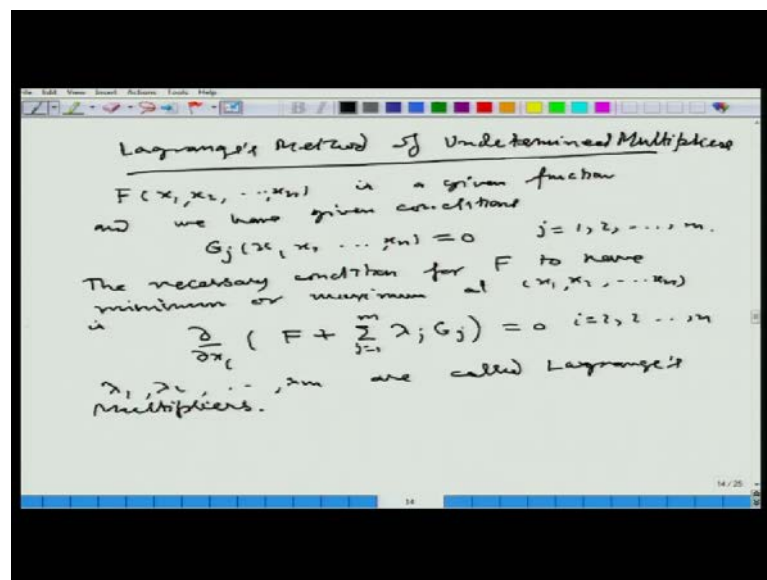 Edit View Insert Actions Tools Help
Lagrange's Method of Undetermined Multipliers
F(x₁, x₂, ..., xₙ) is a given function
and we have given conditions
Gⱼ(x₁ x₂ ... xₙ) = 0 j = 1, 2, ..., m.
The necessary condition for F to have
minimum or maximum at (x₁, x₂, ... xₙ)
is ∂/∂xᵢ ( F + Σ_{j=1}^{m} λⱼ Gⱼ ) = 0 i = 1, 2 ..., n
λ₁, λ₂, ..., λm are called Lagrange's
Multipliers.
14 / 25
14